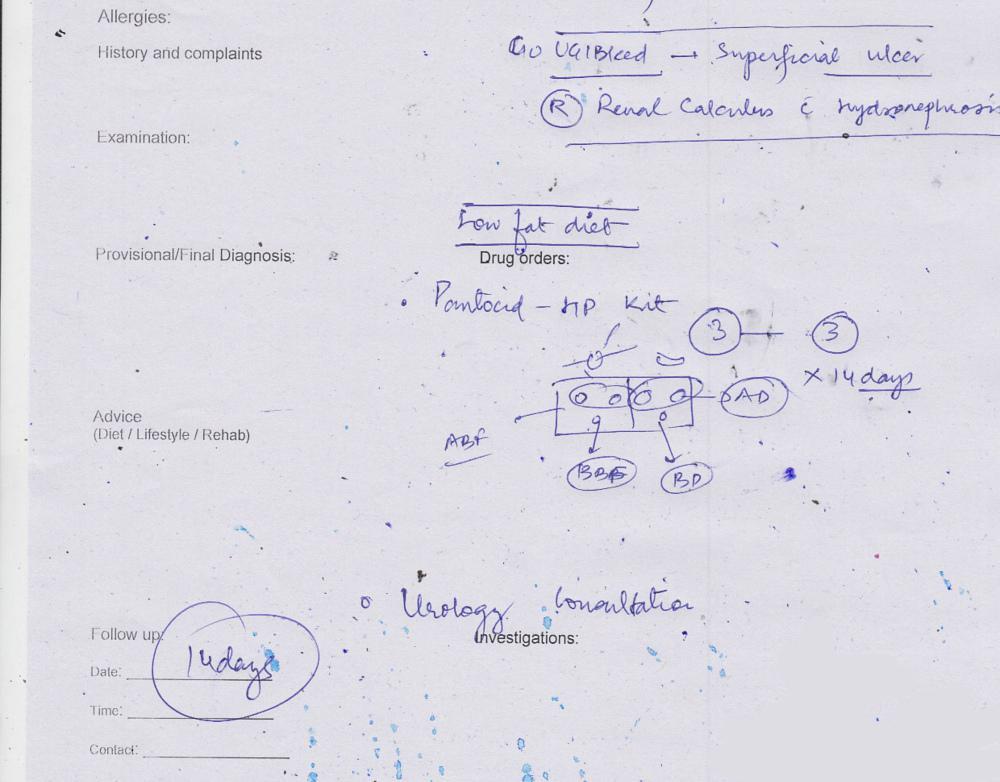 Allergies:
History and complaints
UGIBleed → Superficial ulcer
(R) Renal Calculus c̄ hydronephrosis
Examination:
Low fat diet
Provisional/Final Diagnosis:
Drug orders:
• Pantocid - HP Kit
3 — 3
x 14 days
AD
Advice
(Diet / Lifestyle / Rehab)
ABF
BBF BD
Urology Consultation
Follow up:
Investigations:
14 days
Date:
Time:
Contact: